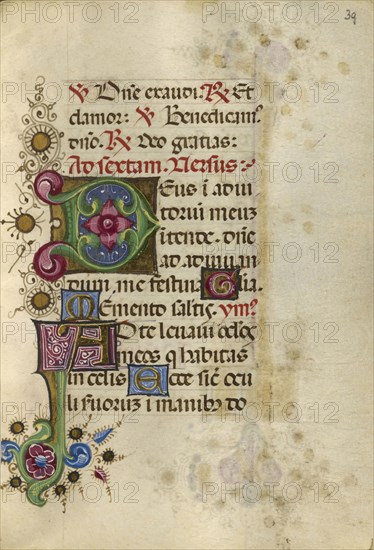 39
V Dñe exaudi. R Et
clamor: V Benedicam9
dño. R Deo gratias:
Ad sextam. Versus:
DEus i adiu
toriū meuz
itende. Dñe
ad adiuuan
dum, me festina Glia.
MEmento salt̄is. ym9.
AD te leuaui oclōs
meos q habitas
in celis Ecce sic̄ ocu
li suoruz i manib9 do